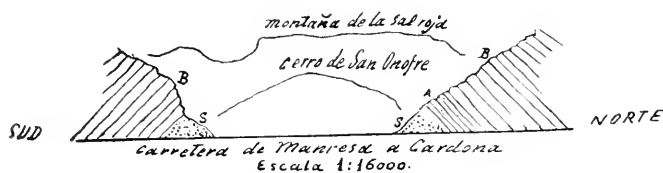 montaña de la Sal roja
B
B
cerro de San Onofre
A
S
S
SUD
NORTE
Carretera de Manresa a Cardona
Escala 1:16000.